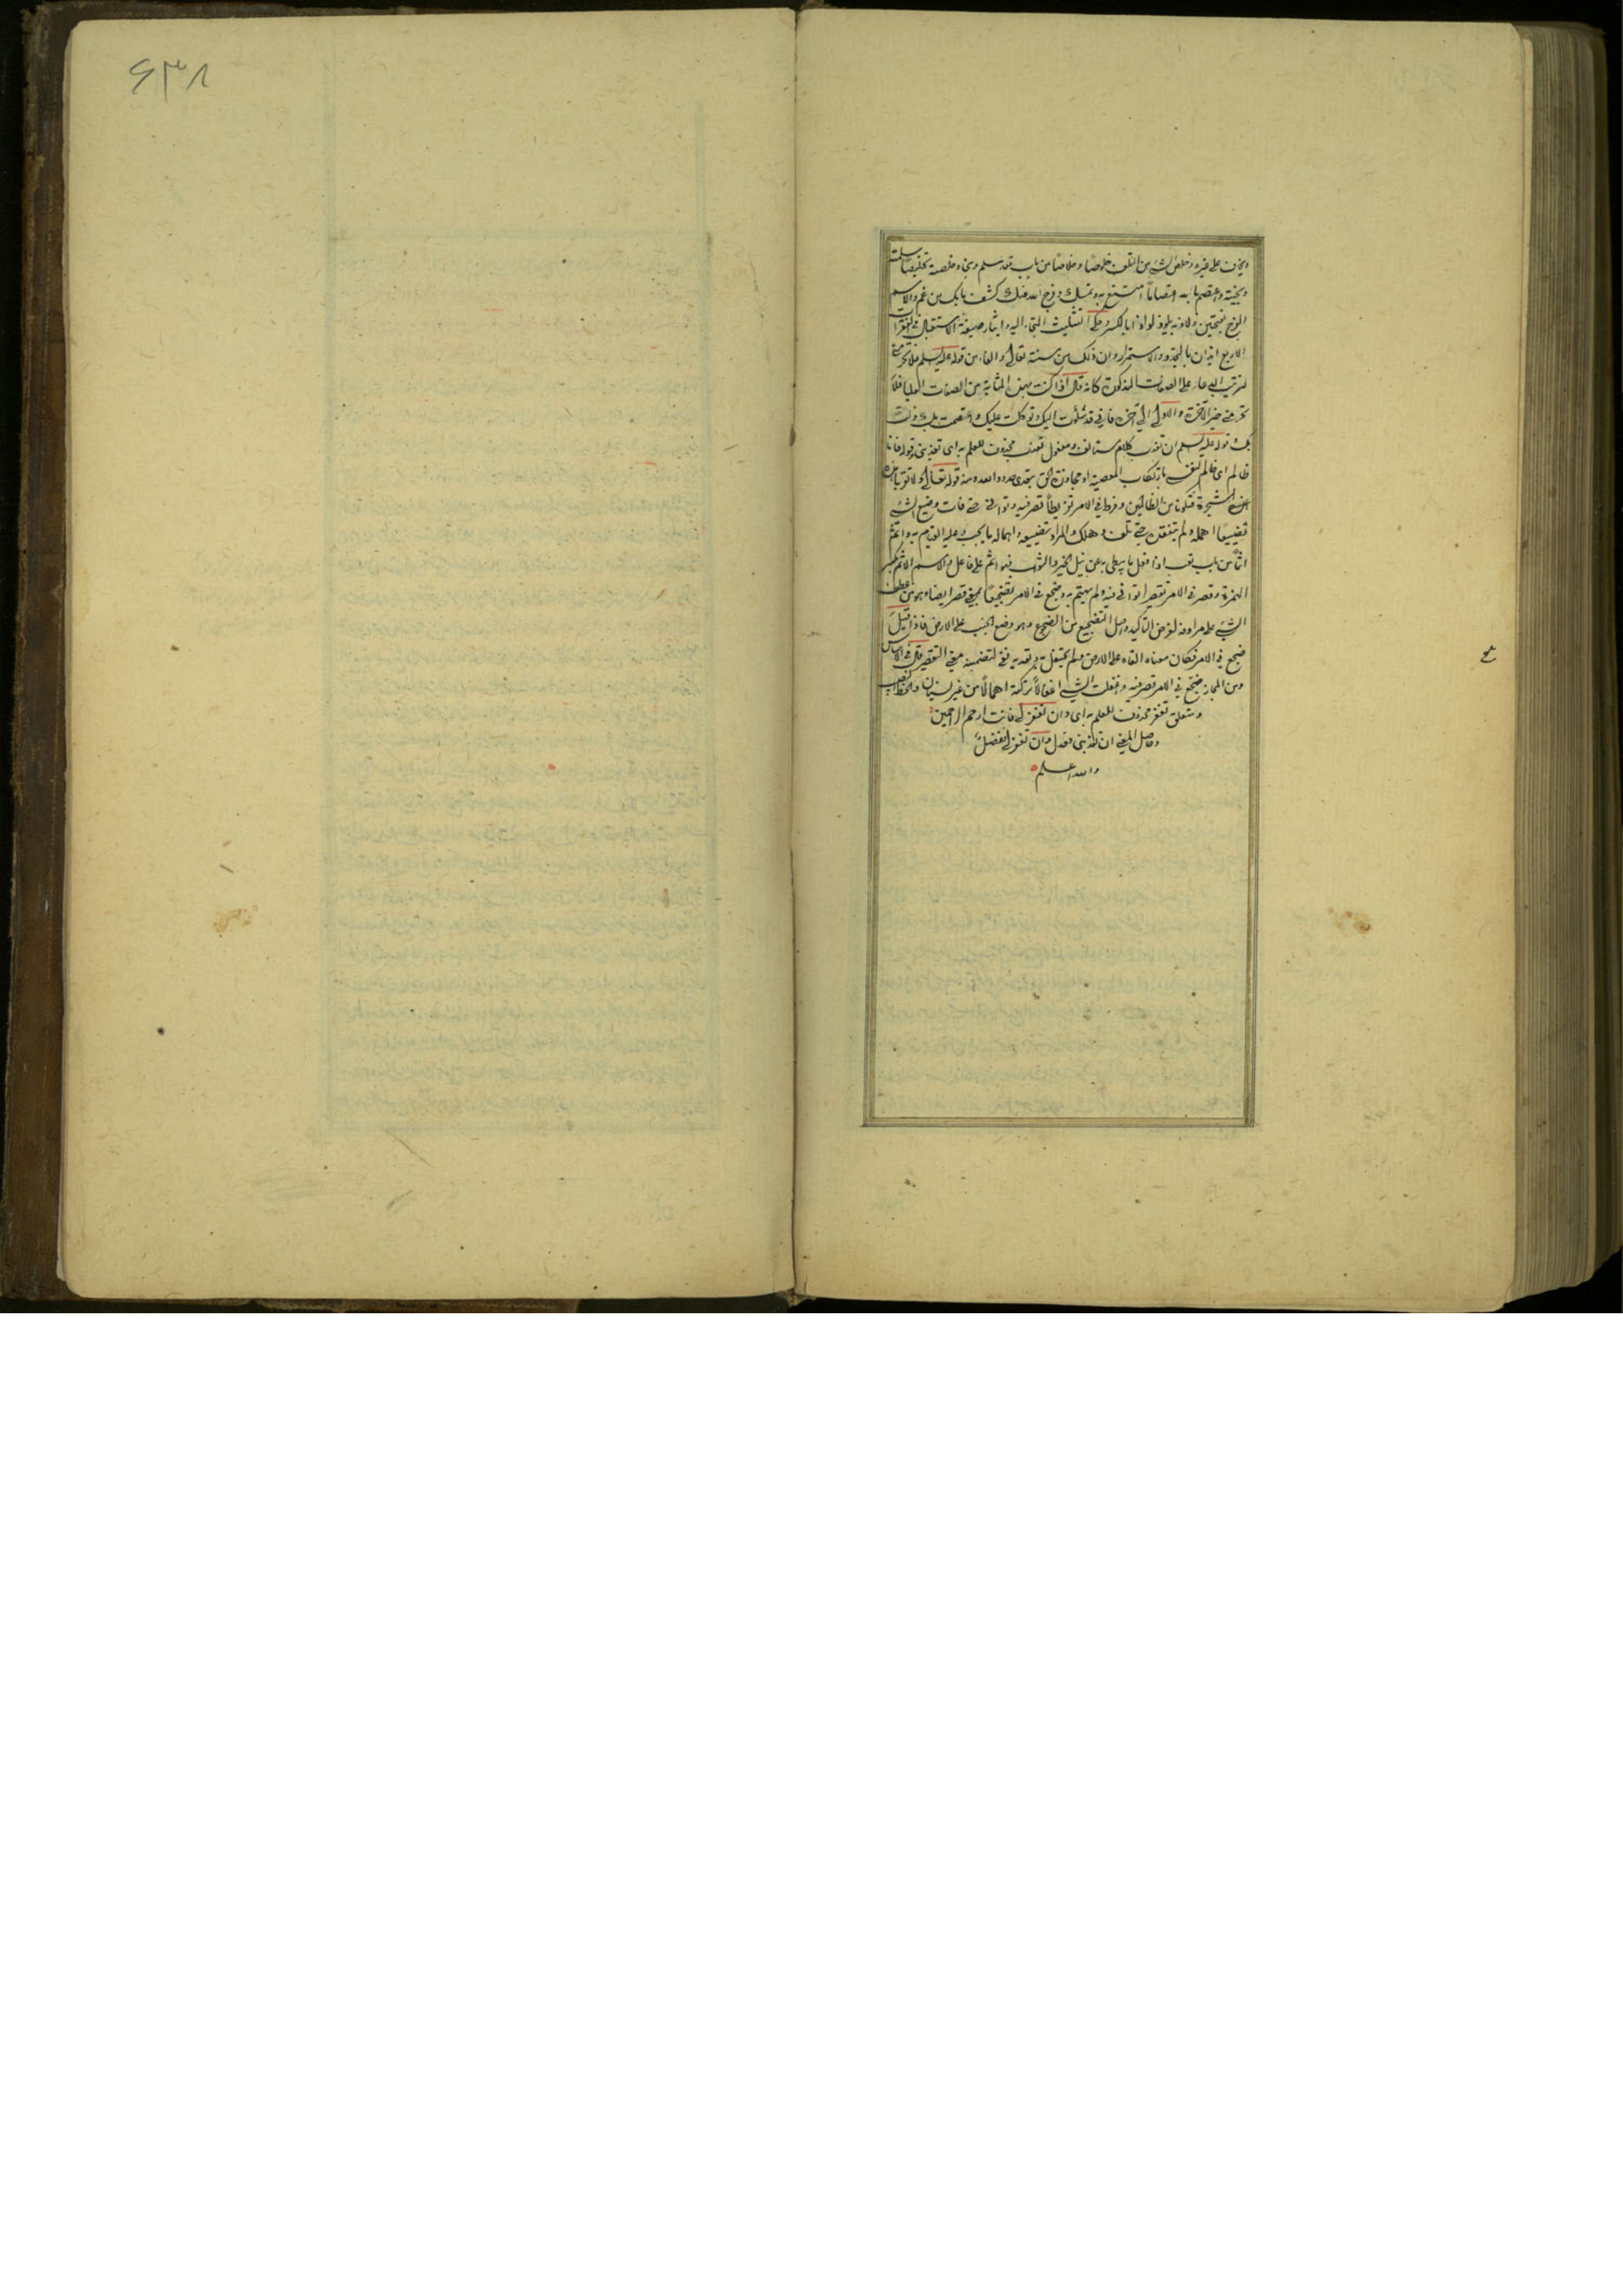 ۶۳۸
ويخاف على غيره وخلص الشئ من التلف خلوصًا وخلاصًا من باب قعد سلم ونجا وخلصته تخليصًا سلمته
ونجيته واعتصم بالله اعتصامًا امتنع به وتمسك وفرج الله عنك كشف ما بك من غم والاسم
الفرج بفتحتين ولاذ به يلوذ لواذا بالكسر وحكى التثليث التجاء اليه وايثار صيغة الاستقبال في الفقرات
الاربع ايذان بالتجدد والاستمرار وان ذلك من سنته تعالى والفاء من قوله عليه السلم فلا تحرمني
لترتيب الدعاء على الصفات المذكورة كانه قال اذا كنت بهذه المثابة من الصفات العليا فلا
تحرمني خير الآخرة والاولى الى آخره فاني قد شكوت اليك وتوكلت عليك واعتصمت بك ولذت
بك وقوله عليه السلم ان تعذب كلام مستانف ومفعول تعذب محذوف للعلم به اى تعذبني وقوله فانا
ظالم اى ظالم لنفسي بارتكاب المعصية او مجاوزة الحق بتعدى حدود الله ومنه قوله تعالى ولا تقربا هذه
الشجرة فتكونا من الظالمين وفرط في الامر تفريطًا قصر فيه وتوانى حتى فات وضيع الشئ
تضييعًا اهمله ولم يتفقده حتى تلف وهلك والمراد تضييعه واهماله ما يجب عليه القيام به واثم
اثمًا من باب تعب اذا فعل ما يبطى به عن نيل الخير والثواب فهو اثم على فاعل والاسم الاثم بكسر
الهمزة وقصر في الامر تقصيرا توانى فيه ولم يهتم به وضجع في الامر تضجيعًا بمعنى قصر ايضا وهو من عطف
الشئ على مرادفه لغرض التاكيد واصل التضجيع من الضجع وهو وضع الجنب على الارض فاذا قيل
ضجع في الامر فكان معناه القاه على الارض ولم يحتفل به وتعديه بفي لتضمينه معنى التقصير قال في الاساس
ومن المجاز ضجع في الامر قصر فيه واغفلت الشئ اغفالًا تركته اهمالًا من غير نسيان
ومتعلق تغفر محذوف للعلم به اى وان تغفر لي فانت ارحم الراحمين
وحاصل المعنى ان تعذبني فعدل وان تغفر لي فتفضل
والله اعلم